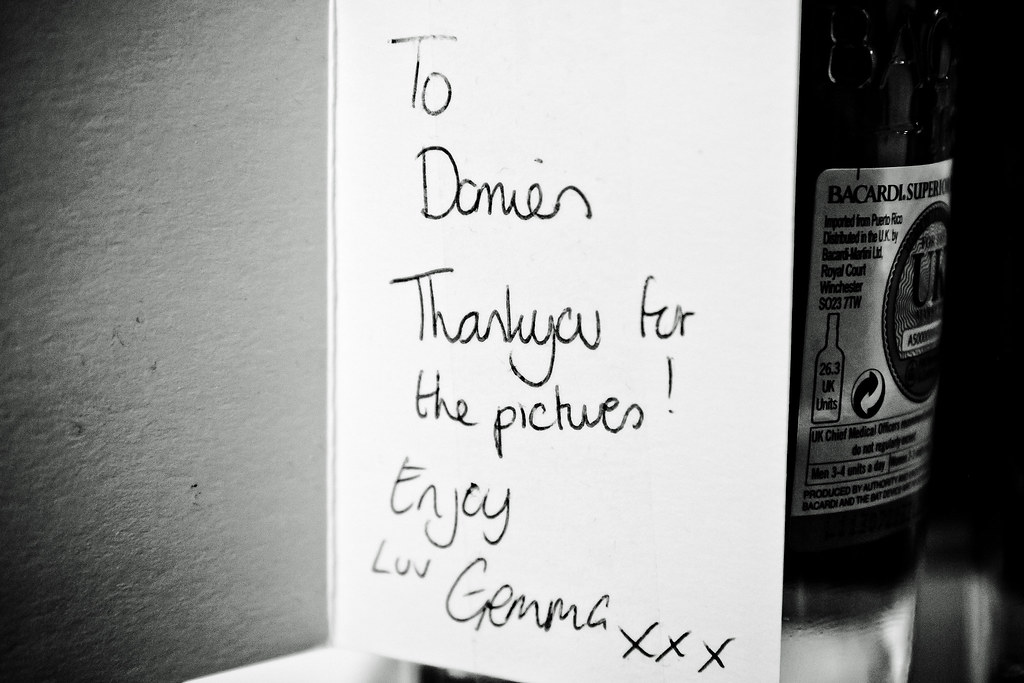 To
Damien
Thankyou for
the pictures!
Enjoy
Luv Gemma
xxx
BACARDI SUPERIOR
Imported from Puerto Rico
Distributed in the U.K. by
Bacardi-Martini Ltd.
Royal Court
Winchester
SO23 7TW
UK
26.3
UK
Units
UK Chief Medical Officers
do not regularly exceed
Men 3-4 units a day
PRODUCED BY AUTHORITY
BACARDI AND THE BAT DEVICE